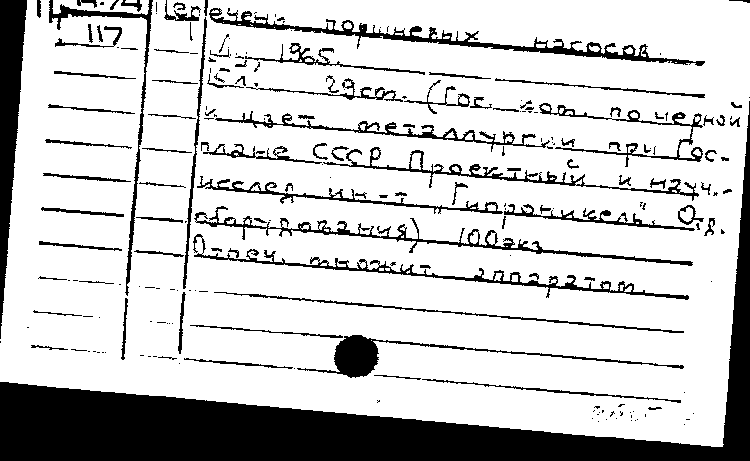 Перечень поршневых насосов.
117
Л., 1965.
15л. 29см. (Гос. ком. по черной
и цвет. металлургии при Гос-
плане СССР. Проектный и науч.-
исслед. ин-т „Гипроникель". Отд.
оборудования) 100экз
Отпеч. множит. аппаратом.